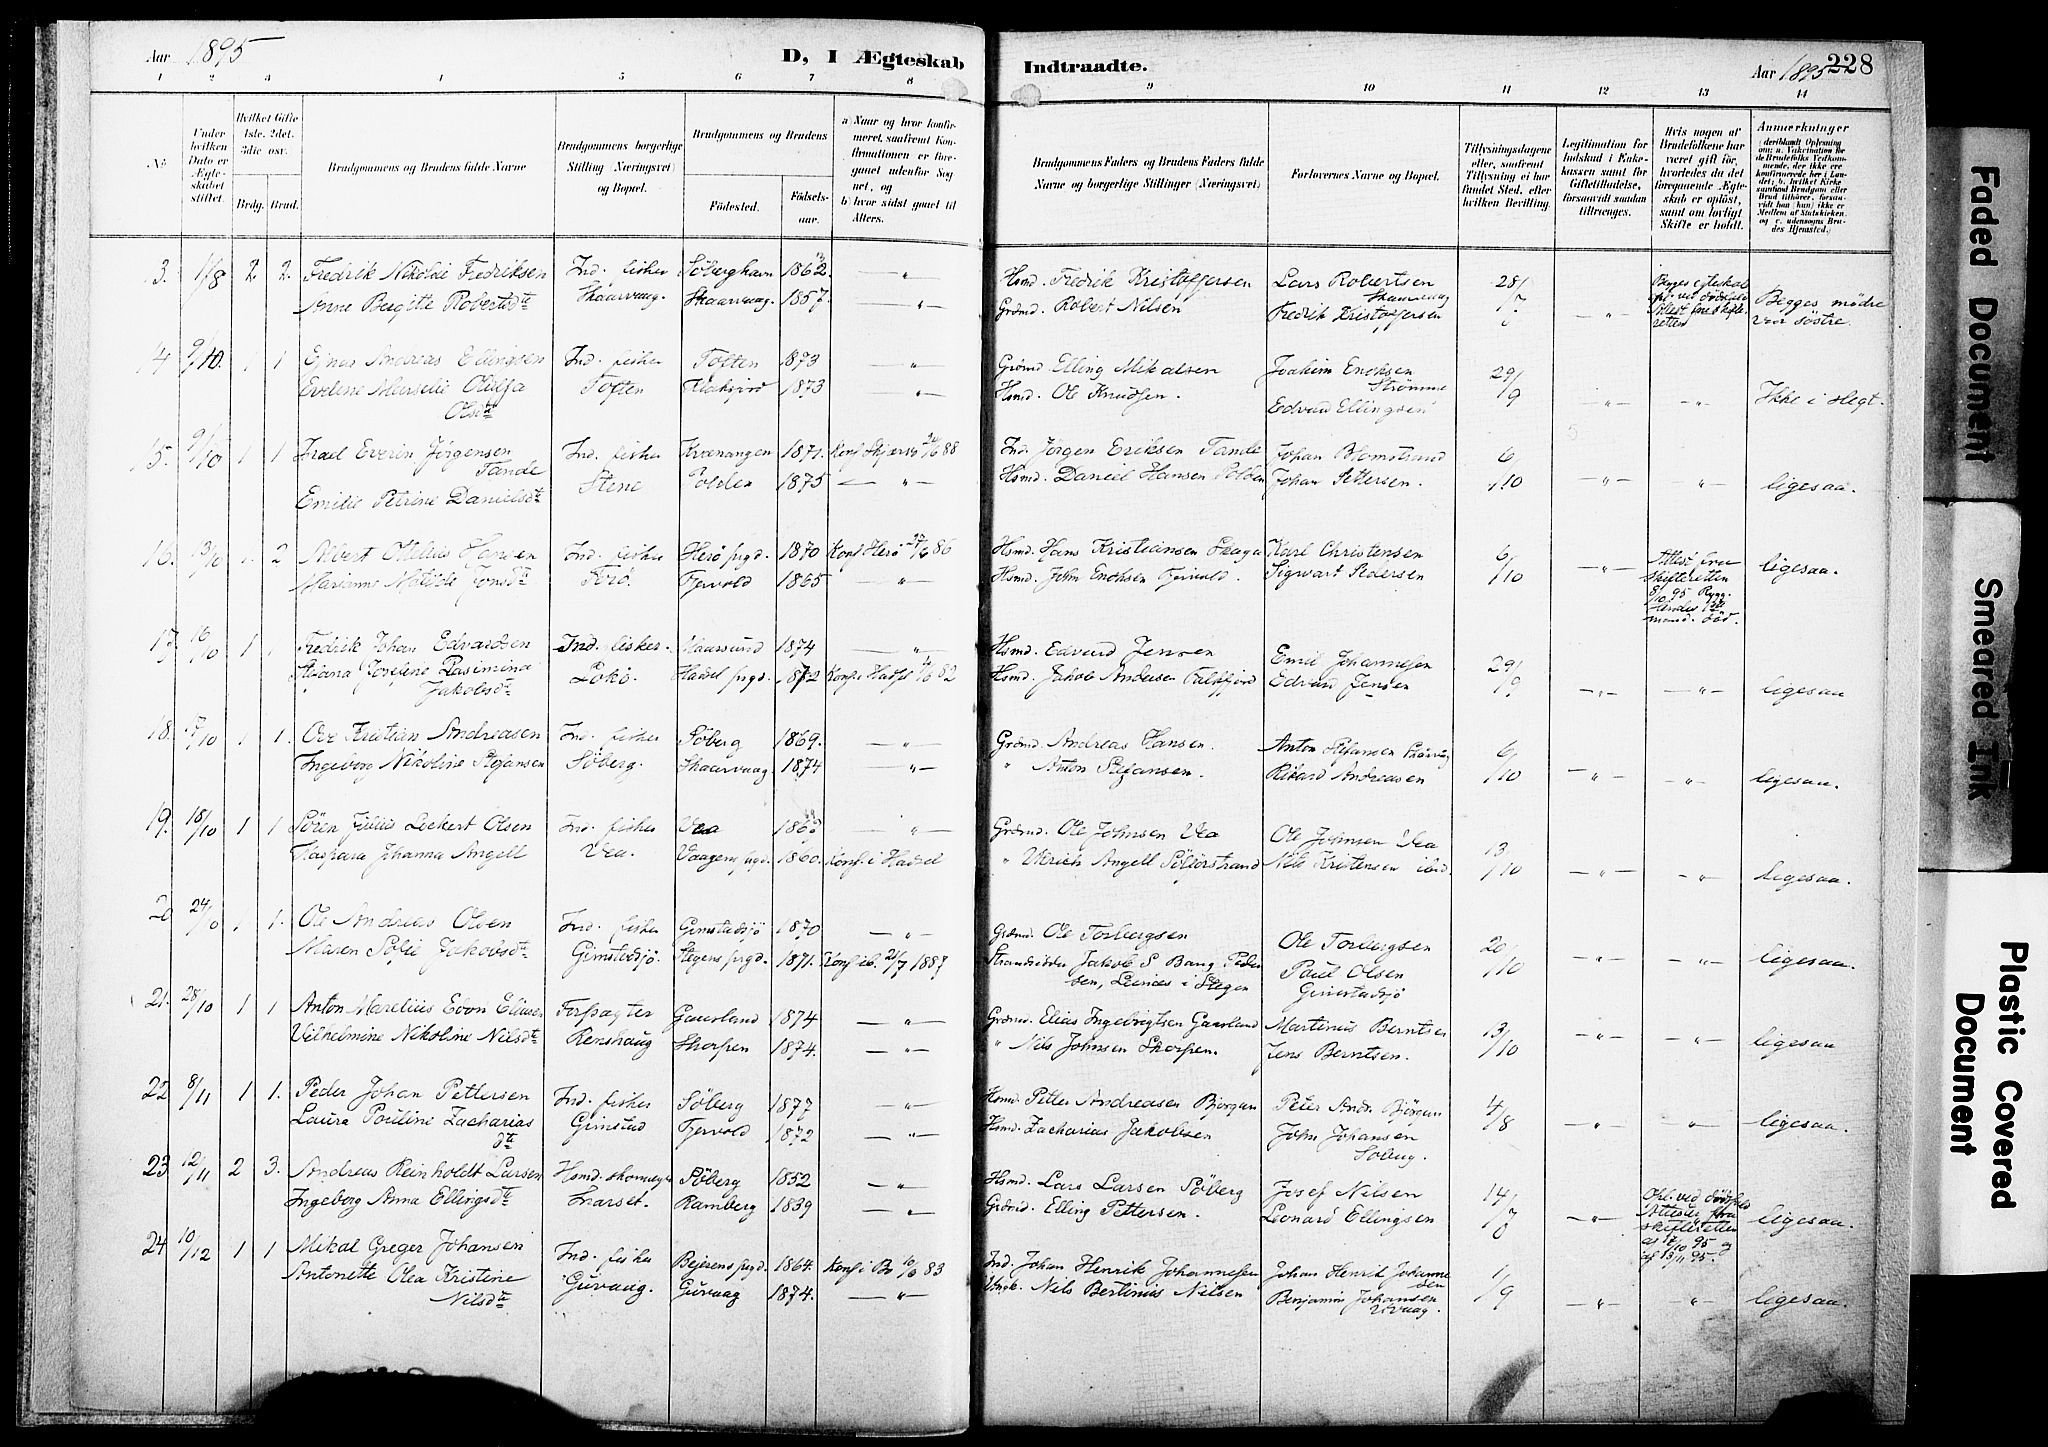 Aar 1895
D, I Ægteskab
Indtraadte.
Aar 1895
228
1 2 3 4 5 6 7 8
9 10 11 12 13 14
No
Under hvilken Dato er Ægteskabet stiftet.
Hvilket Gifte 1ste. 2det. 3die osv.
Brdg. Brud.
Brudgommens og Brudens fulde Navne
Brudgommens borgerlige Stilling (Næringsvei) og Bopæl.
Brudgommens og Brudens
Fødested.
Fødselsaar.
a) Naar og hvor konfirmeret, saafremt Konfirmationen er foregaaet udenfor Sognet, og
b) hvor sidst gaaet til Alters.
Brudgommens Faders og Brudens Faders fulde Navne og borgerlige Stillinger (Næringsvei)
Forlovernes Navne og Bopæl.
Tillysningsdagene eller, saafremt Tillysning ei har fundet Sted, efter hvilken Bevilling.
Legitimation for Indskud i Enkekassen samt for Giftetilladelse, forsaavidt saadan tiltrænges.
Hvis nogen af Brudefolkene har været gift før, hvorledes da det foregaaende Ægteskab er opløst, samt om lovligt Skifte er holdt.
Anmærkninger
3. 1/8 2 2. Fredrik Nikolai Fredriksen Ind. fisker Söberghavn 1862. — " — Hsmd. Fredrik Kristoffersen Lars Robertsen 28/7
Anne Bergitte Robertsdtr Skaarvaag. Skaarvaag. 1857. — " — Grdmd. Robert Nilsen Skaarvaag Fredrik Kristoffersen — " — Begges mödre var söstre.
14 9/10. 1 1 Ejnar Andreas Ellingsen Ind. fisker Toften 1873 — " — Grdmd Elling Mikalsen Joakim Enoksen Strømme 29/9
Evelene Marselie Olufa Olsdtr Toften 1873 — " — Hsmd. Ole Knudsen. Edvard Ellingsen — " — — " — Ikke i slegt.
15. 9/10 1 1 Israel Everin Jørgensen Tande Ind. fisker Kvænangen 1871. Konf. Skjervø 88 Ind. Jørgen Eriksen Tande Johan Blomstrand 6/10
Emilie Petrine Danielsdtr Stene Polden 1875 — " — Hsmd. Daniel Hansen Polden Johan Pettersen. — " — — " — ligesaa.
16. 13/10 1. 2 Albert Otelius Hansen Ind. fisker Herø prgd. 1870 Konf Herø 86 Hsmd. Hans Kristiansen Skaga Karl Christensen 6/10
Marianne Matilde Jonsdtr Forø. Tjervold 1865 — " — Hsmd. John Enoksen Tjervold. Sigvart Pedersen — " — Attest fra skifteretten 8/10 95 ligesaa.
17. 16/10 1 1 Fredrik Johan Edvardsen Ind. fisker. 1874 — " — Hsmd. Edvard Jensen Emil Johannesen 29/9
Jakobsdtr Lokö. Hadsel prgd. 1872 Konf. Hadsel 82 Hsmd. Jakob Andersen Edvard Jensen — " — — " — ligesaa
18. 17/10 1 1. Ole Kristian Andreasen Ind. fisker Söberg 1869. — " — Grdmd. Andreas Hansen. Anton Stefansen 6/10
Ingeborg Nikoline Stefansen Söberg. Skaarvaag 1874 — " — " Anton Stefansen. Rikard Andreasen — " — — " — ligesaa.
19. 18/10 1 1 Sören Julius Leckert Olsen Ind. fisker Vea — " — Grdmd. Ole Johnsen Vea Ole Johnsen Vea 13/10
Kaspara Johanna Angell Vea. Vaagens pgd. 1860. Konf. i Hadsel " Ulrich Angell Nils Kristensen ibid. — " — — " — ligesaa.
20 24/10 1 1. Ole Andreas Olsen Ind. fisker Gimstadsjö 1870 — " — Grdmd. Ole Torbergsen Ole Torbergsen 20/10
Maren Sofie Jakobsdtr Gimstadsjö. Stegens prgd. 1871. Konf. ib. 1887 Strandsidder Jakob S Bang Pedersen, Leines i Stegen Paul Olsen Gimstadsjö — " — — " — ligesaa.
21. 28/10 1 1 Anton Marelius Edon Eliasen Forpagter Gaasland 1874 — " — Grdmd. Elias Ingebrigtsen Gaasland Martinus Berntsen 13/10
Vilhelmine Nikoline Nilsdtr Renshaug Skorpen 1874. — " — " Nils Johnsen Skorpen. Jens Berntsen. — " — — " — ligesaa
22 8/11 1 1. Peder Johan Pettersen Ind. fisker Söberg 1877 — " — Hsmd Petter Andreasen Bjørgan Peter Andr. Bjørgan 4/8
Laura Pauline Zachariasdtr Gimstad Tjervold 1872 — " — Hsmd. Zacharias Jakobsen John Johansen Söberg. — " — — " — ligesaa.
23 12/11 2 3. Andreas Reinholdt Larsen Hsmd. skomager Söberg 1852 — " — Hsmd. Lars Larsen Söberg Josef Nilsen 14/7
Ingeborg Anna Ellingsdtr Snarset. Ramberg 1839 — " — Grdmd. Elling Pettersen. Leonard Ellingsen — " — Opl. ved dödsfald Attester fra skifteretten ligesaa.
24 10/12 1 1 Mikal Greger Johansen Ind. fisker Bejerens pgd. 1864. Konf i Bö 83 Ind. Johan Henrik Johannesen Johan Henrik Johannesen 1/9
Antonette Olea Kristine Nilsdtr Guvaag. Guvaag 1874. — " — Nils Bertinius Nilsen Benjamin Johansen — " — — " — ligesaa.
Faded Document
Smeared Ink
Plastic Covered Document